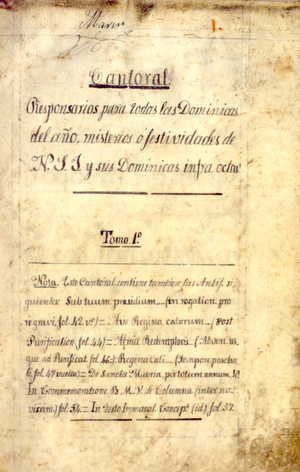 Marin
1.
Cantoral
Responsorios para todas las Dominicas
del año, misterios ó festividades de
N. S. J. y sus Dominicas infra octa
Tomo 1º
Nota. Este Cantoral contiene tambien las Antif. si
guientes: Sub tuum presidium (in rogation. pro
re gravi, fol. 42 vº) = Ave Regina cœlorum (Post
Purification, fol. 44) = Alma Redemptoris (Ab
ad Purificat. fol. 46) = Regina Cœli (Tempore pascha
le, fol. 49 vuelto) = De Sancta Maria, per totum annum,
In Commemoratione B. M. V. de Columna (inter no
vissim.) fol. 54. = In festo Immacul. Concept. (id.) fol. 57.